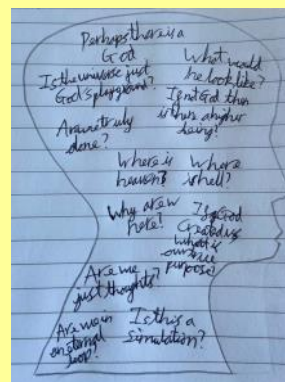 Perhaps there is a
God
What would
he look like?
Is the universe just
God's playground?
If not God then
is there a higher
being?
Are we truly
alone?
Where is
heaven?
Where
is hell?
Why are w
here?
If God
Created us
what is
our true
purpose?
Are we
just thoughts?
Are we in
an eternal
loop?
Is this a
simulation?